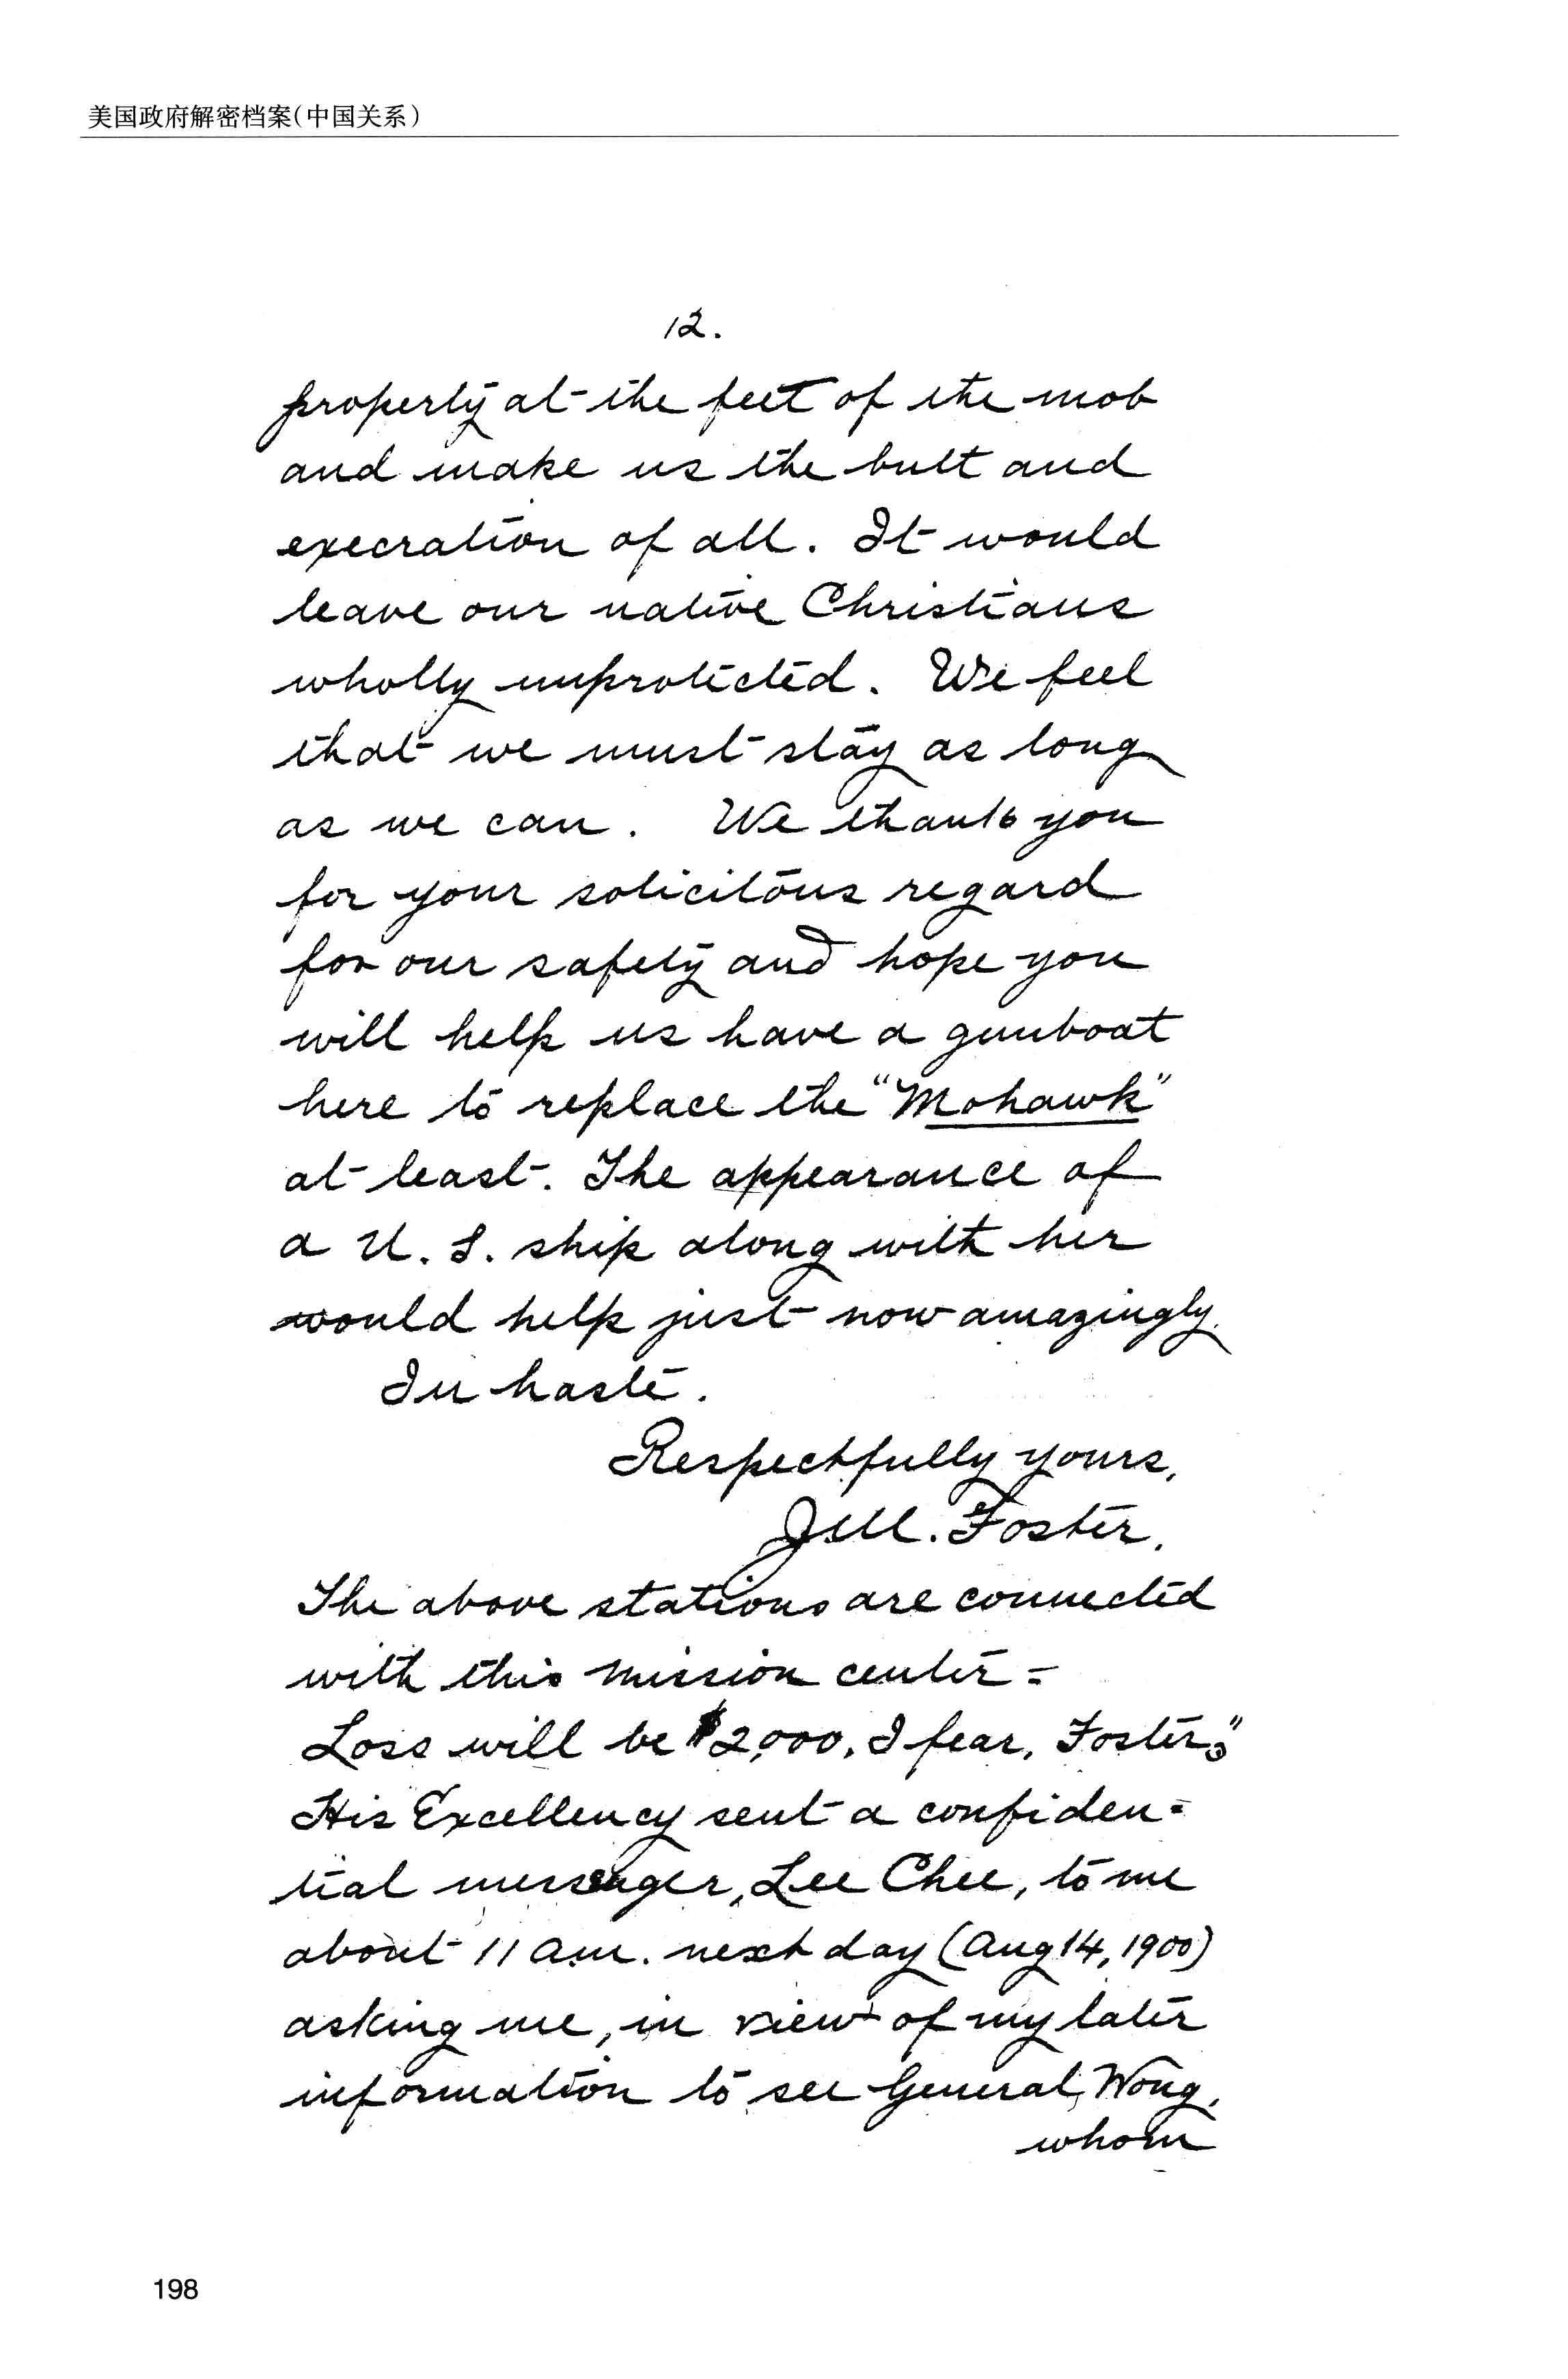 美国政府解密档案(中国关系)
12.
property at the feet of the mob
and make us the butt and
execration of all. It would
leave our native Christians
wholly unprotected. We feel
that we must stay as long
as we can. We thank you
for your solicitous regard
for our safety and hope you
will help us have a gunboat
here to replace the "Mohawk"
at least. The appearance of
a U. S. ship along with her
would help just now amazingly.
In haste.
Respectfully yours,
Foster.
The above stations are connected
with this mission center =
Loss will be $2,000, I fear, Foster."
His Excellency sent a confiden=
tial messenger, Lee Chee, to me
about 11 a.m. next day (Aug 14, 1900)
asking me, in view of my later
information to see General Wong,
whom
198